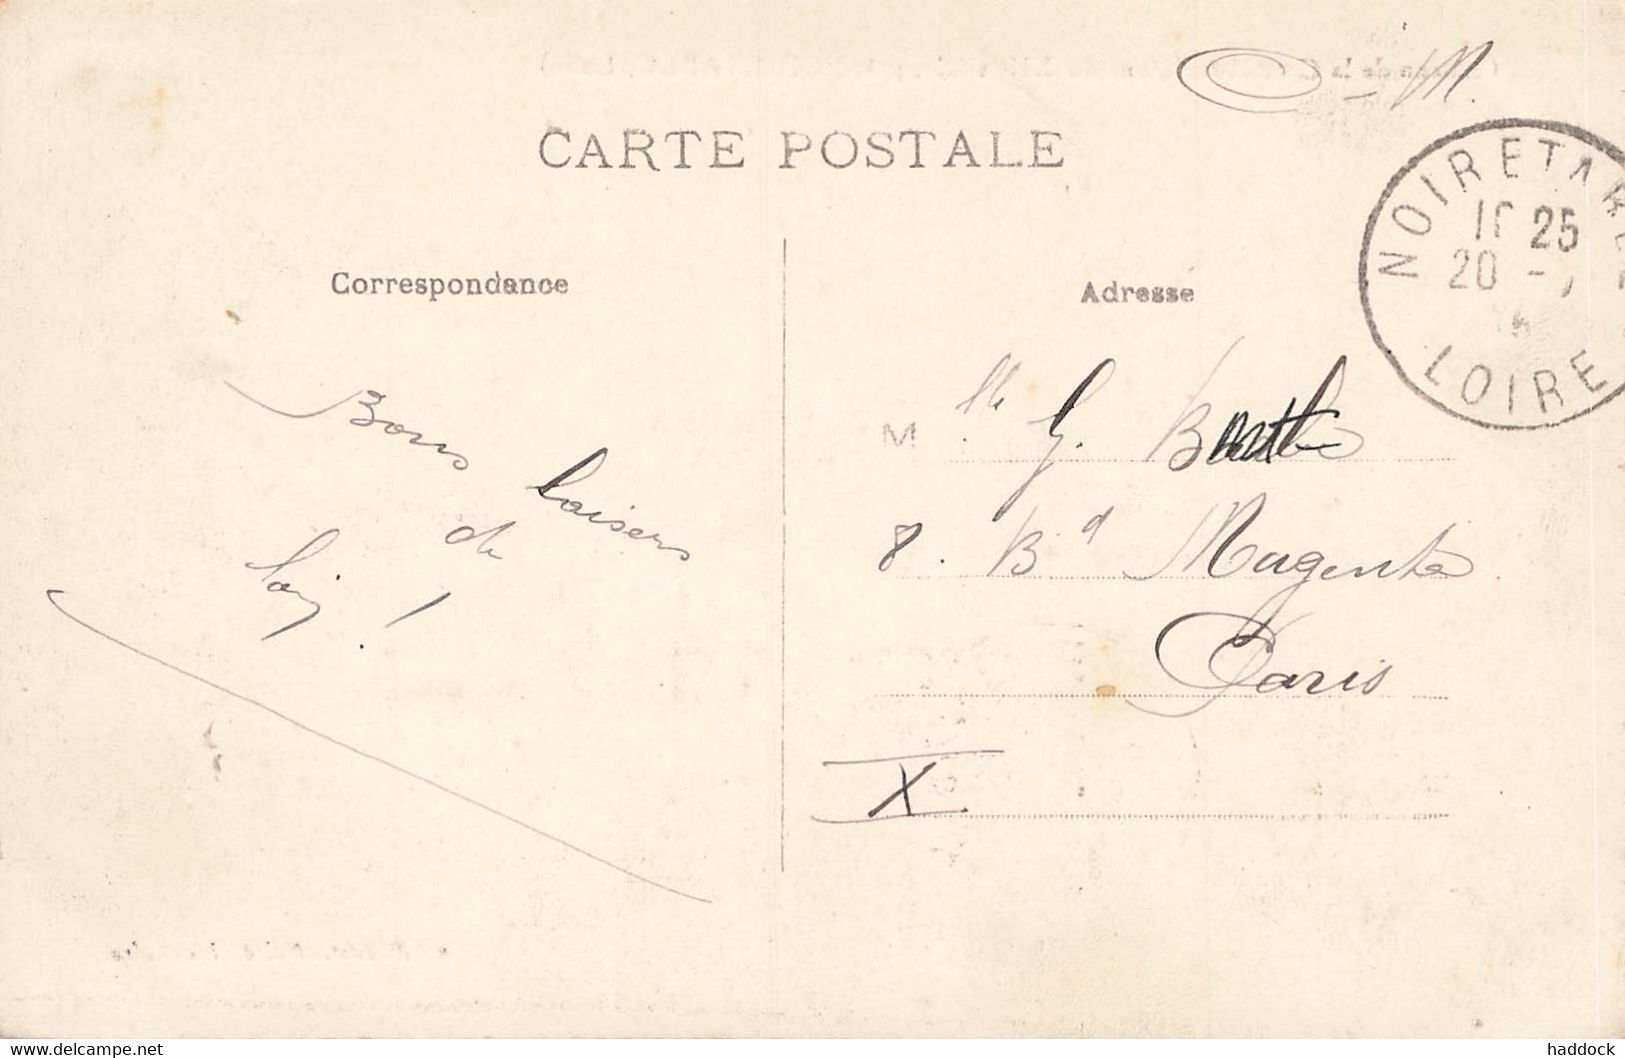 O - M.
CARTE POSTALE
NOIRETABLE
25
20 -
LOIRE
Correspondance
Adresse
Bons baisers
de
M lle G. Barthe
8. Bd Magenta
Paris
X
www.delcampe.net
haddock